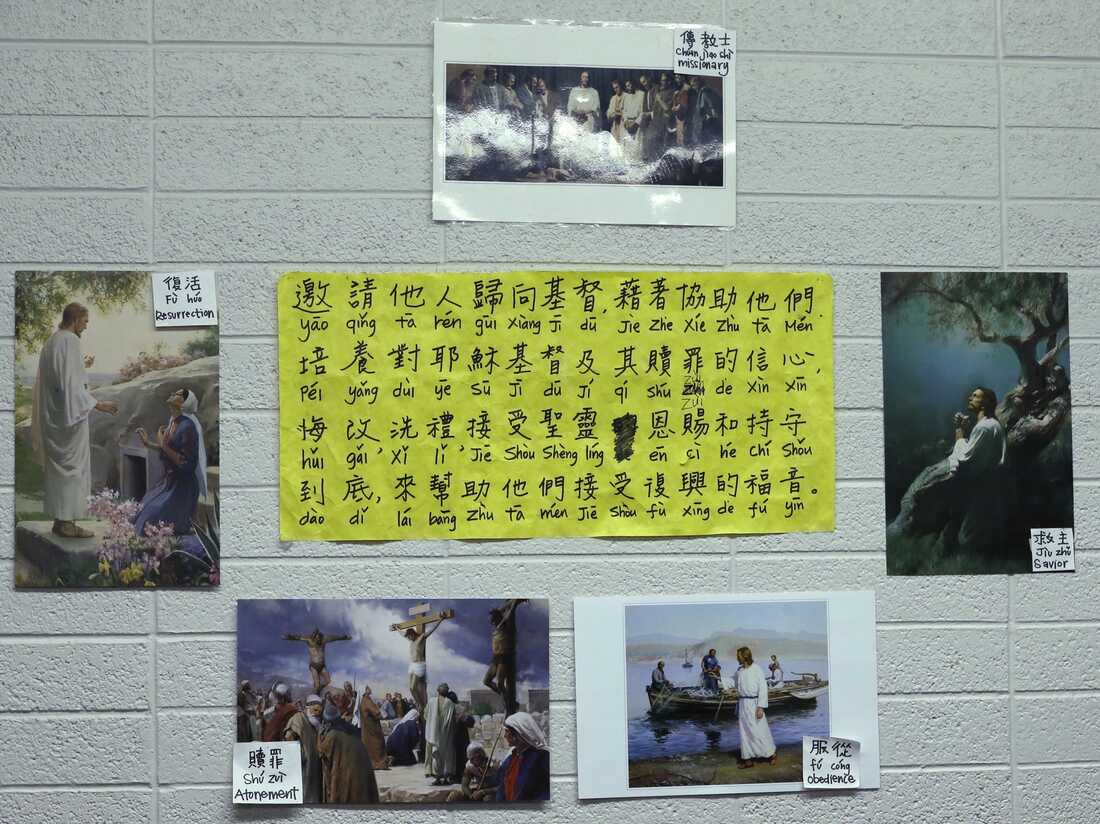 傳教士
chúan jiao shì
missionary
復活
Fù húo
Resurrection
邀請他人歸向基督,藉著協助他們
yāo qǐng tā rén gūi xiàng jī dū, Jie Zhe Xíe Zhù tā Mén.
培養對耶穌基督及其贖罪的信心,
péi yǎng dùi yē sū jī dū jí qí shú zùi de Xìn Xīn
悔改,洗禮,接受聖靈恩賜和持守
hǔi gǎi, Xǐ lǐ, Jiē Shòu Shèng líng ēn cì hé chí Shǒu
到底,來幫助他們接受復興的福音。
dào dǐ lái bāng zhù tā mén Jiē Shòu fù xīng de fú yīn
救主
Jìu zhǔ
Savior
贖罪
Shú zuì
Atonement
服從
fú cóng
obedience